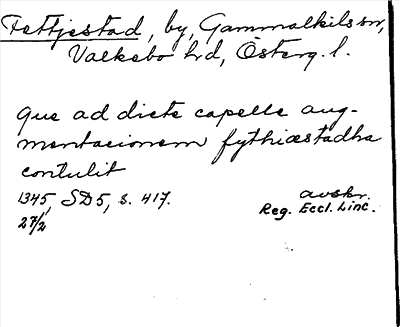 Fettjestad, by, Gammalkils sn,
Valkebo hd, Österg. l.
que ad dicte capelle aug-
mentacionem fythiæstadha
contulit
1345, SD5, s. 417.
27/2
avskr.
Reg. Eccl. Linc.